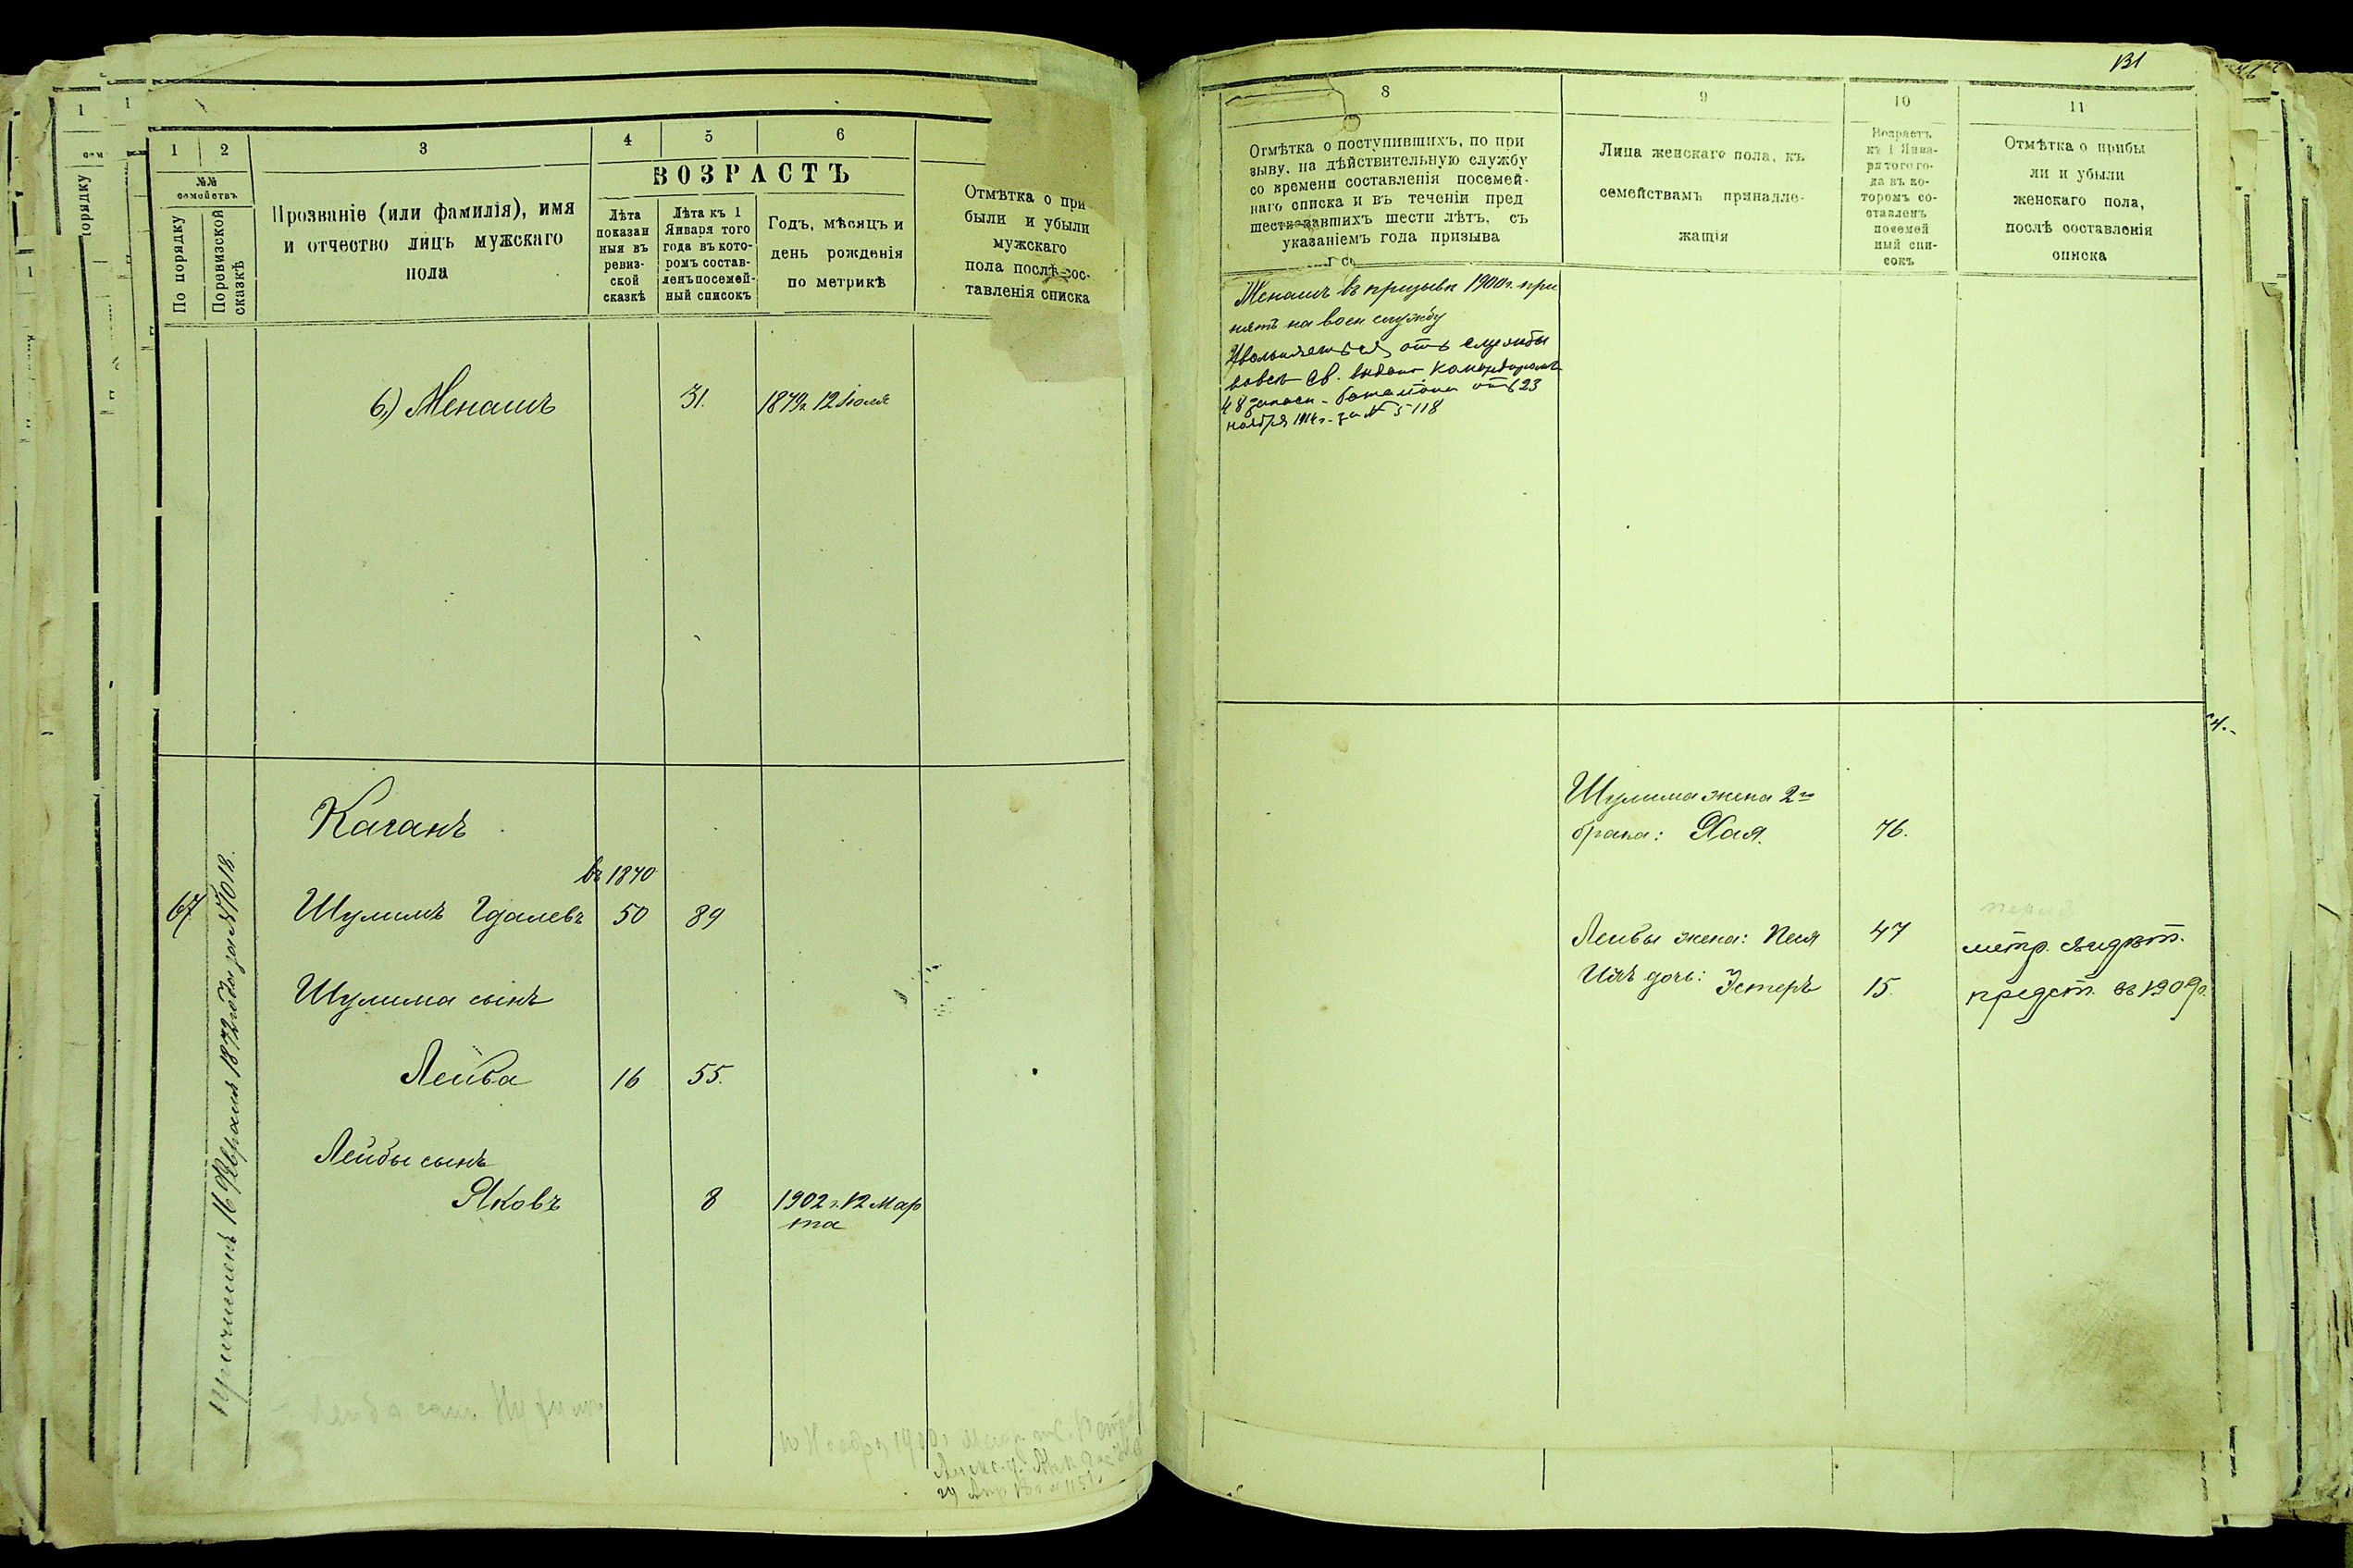 1
2
3
4
5
6
№№
семействъ
По порядку
По ревизской
сказкѣ
Прозваніе (или фамилія), имя
и отчество лицъ мужскаго
пола
ВОЗРАСТЪ
Лѣта
показан
ныя въ
ревиз-
ской
сказкѣ
Лѣта къ 1
Января того
года въ кото-
ромъ состав-
ленъ посемей-
ный списокъ
Годъ, мѣсяцъ и
день рожденія
по метрикѣ
Отмѣтка о при
были и убыли
мужскаго
пола послѣ сос-
тавленія списка
6) Менашъ
31.
1879 г. 12 Іюля
Каганъ
въ 1840
67
Шулимъ Гдалевъ
50
89
Шулима сынъ
Лейба
16
55.
Лейбы сынъ
Яковъ
8
1902 г. 12 Мар
та
Причисленъ 16 Февраля 1872 года за №1018.
131
8
9
10
11
Отмѣтка о поступившихъ, по при
зыву, на дѣйствительную службу
со времени составленія посемей-
наго списка и въ теченіи пред
шествовавшихъ шести лѣтъ, съ
указаніемъ года призыва
Лица женскаго пола, къ
семействамъ принадле-
жащія
Возрастъ
къ 1 Янва-
ря того го-
да въ ко-
торомъ со-
ставленъ
посемей
ный спи-
сокъ
Отмѣтка о прибы
ли и убыли
женскаго пола,
послѣ составленія
списка
Менашъ въ призывѣ 1900 г. при
нятъ на воен службу
Увольняется отъ службы
вовсе Св. выдано Командиромъ
48 запасн. баталіона отъ 23
ноября 1914 г. за № 5118
Шулима жена 2го
брака: Хая.
76.
Лейбы жена: Песя
47
метр. свидѣт.
Ихъ дочь: Эстеръ
15.
предст. въ 1909 г.